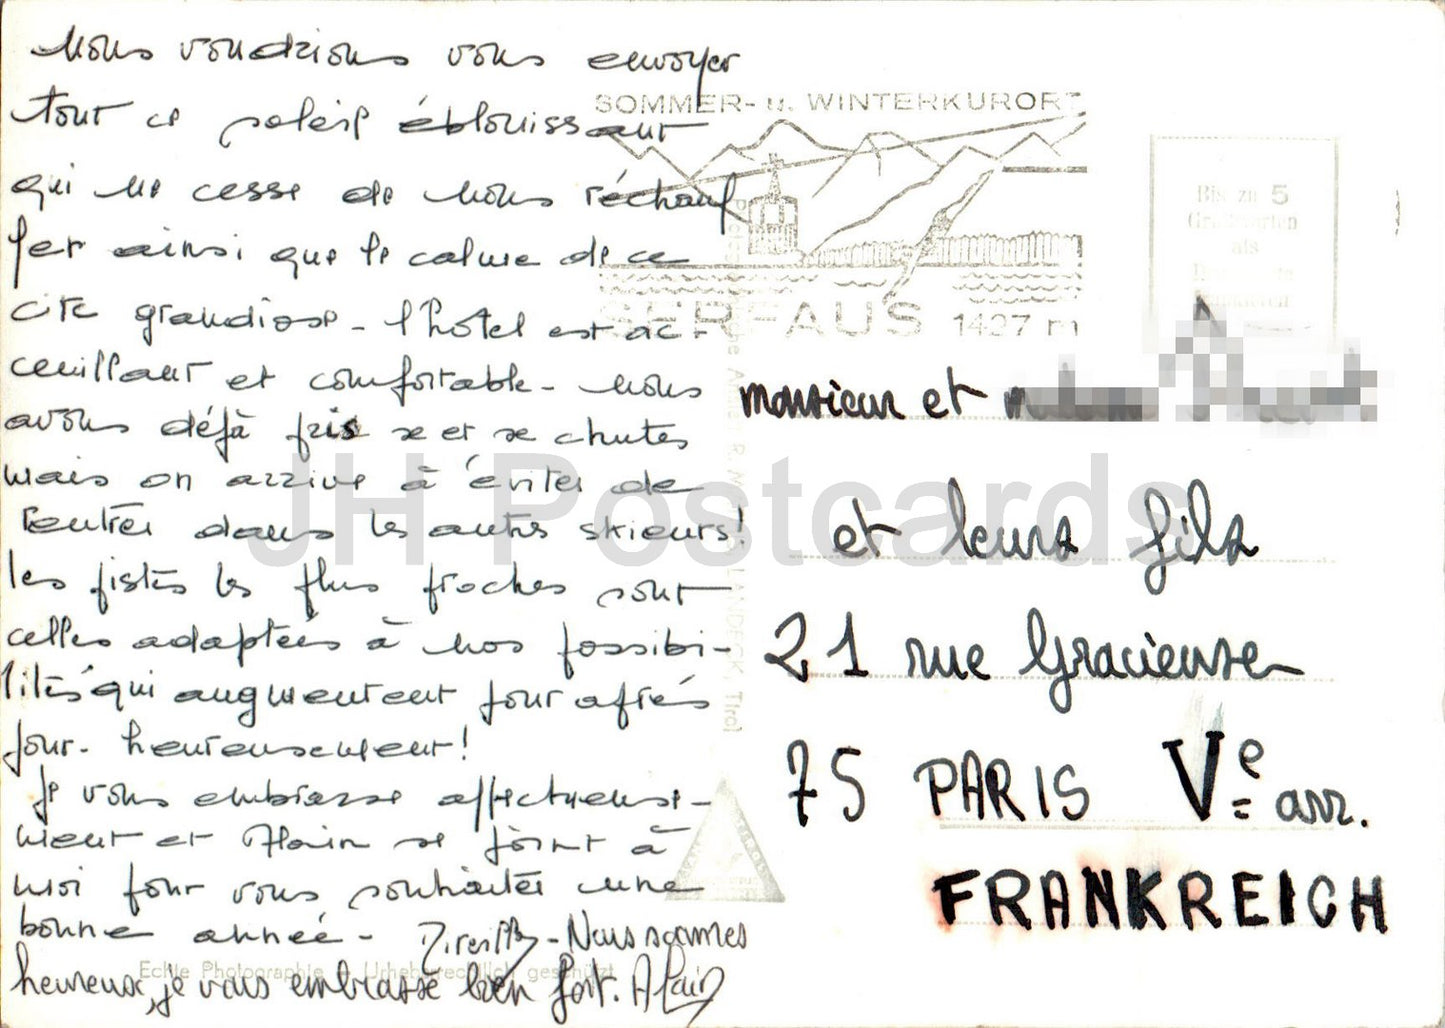 Nous voudrions vous envoyer
tout ce soleil éblouissant
qui ne cesse de nous réchauf
fer ainsi que le calme de ce
cite grandiose - l'hôtel est ac-
ceuillant et confortable - nous
avons déjà pris xe et xe chutes
mais on arrive à éviter de
rentrer dans les autres skieurs!
les pistes les plus proches sont
celles adaptées à nos possibi-
lités qui augmentent jour après
jour - heureusement!
Je vous embrasse affectueuse-
ment et Alain se joint à
moi pour vous souhaiter une
bonne année - Mireille - Nous sommes
heureux, je vous embrasse bien fort. Alain
SOMMER- u. WINTERKURORT
SERFAUS 1427 m
Bis zu 5
Grußworten
als
monsieur et
et leurs fils
21 rue Gracieuse
75 PARIS Ve arr.
FRANKREICH
LANDECK, Tirol
Echte Photographie - Urheberrechtlich geschützt
JH Postcards